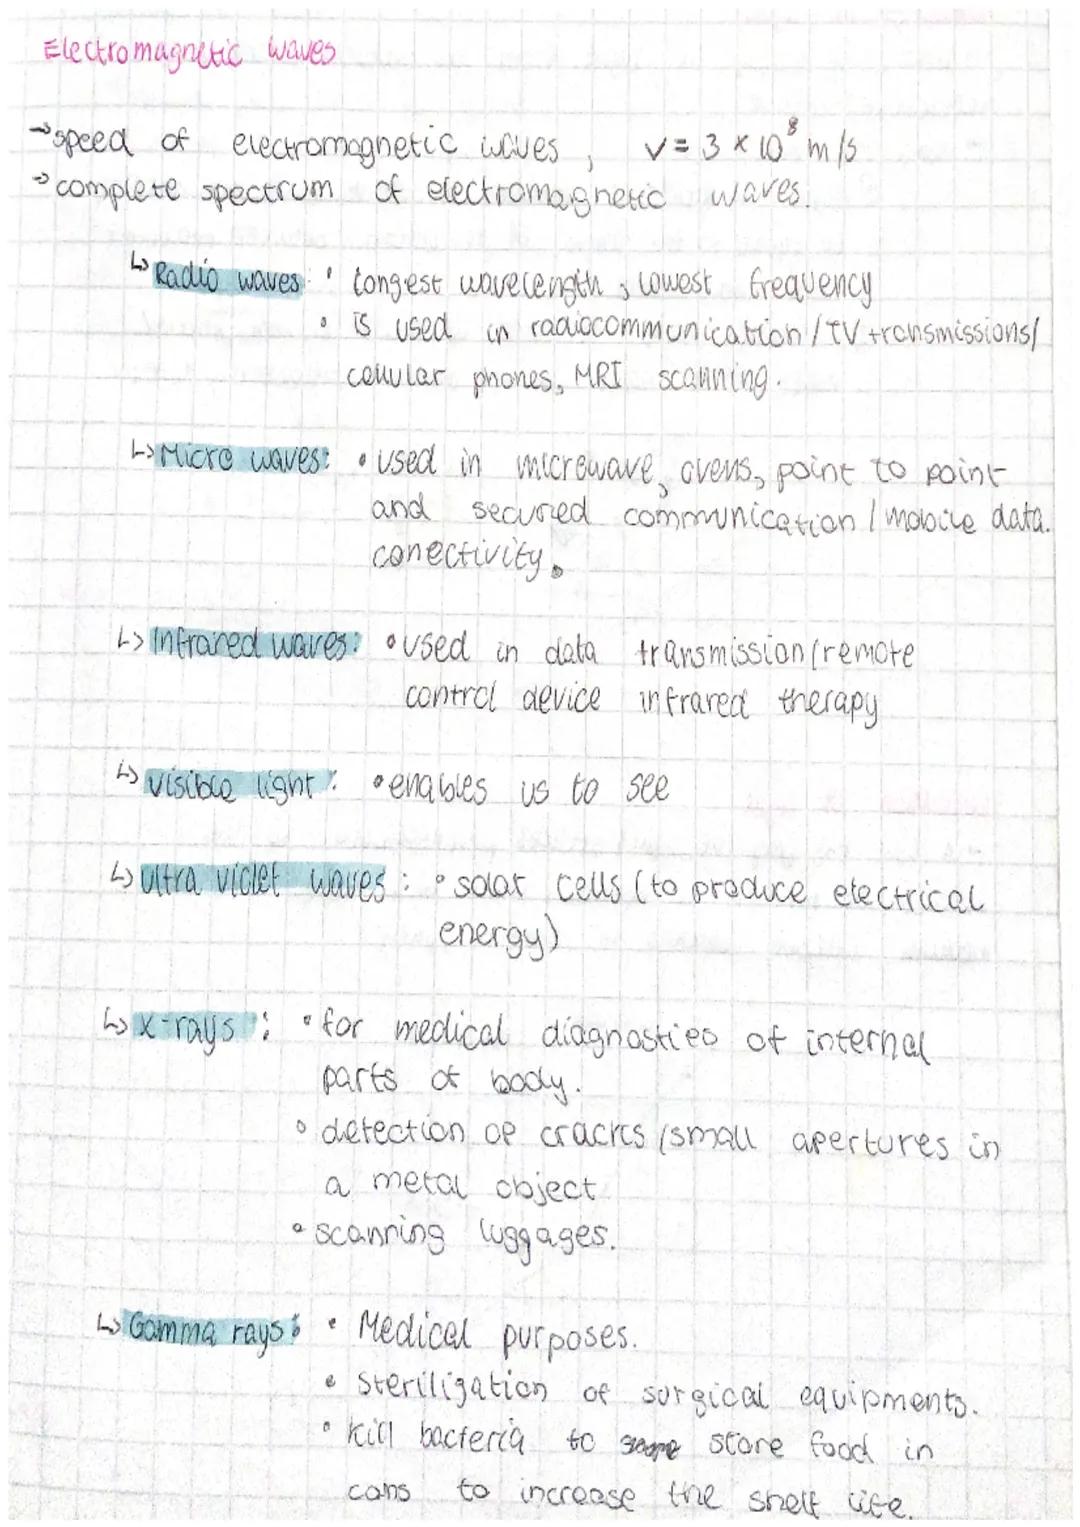 Electromagnetic waves
→ speed of electromagnetic waves, v = 3 × 10⁸ m/s
→ complete spectrum of electromagnetic waves.
↳ Radio waves: • longest wavelength, lowest frequency
• is used in radiocommunication / TV transmissions/
cellular phones, MRI scanning.
↳ Micro waves: • used in microwave, ovens, point to point
and secured communication / mobile data.
conectivity.
↳ Infrared waves: • used in data transmission (remote
control device infrared therapy
↳ visible light: • enables us to see
↳ ultra violet waves: • solar cells (to produce electrical
energy)
↳ x-rays: • for medical diagnosties of internal
parts of body.
• detection of cracks (small apertures in
a metal object
• scanning luggages.
↳ Gamma rays: • Medical purposes.
• sterilization of surgical equipments.
• kill bacteria to store food in
cans to increase the shelf life.